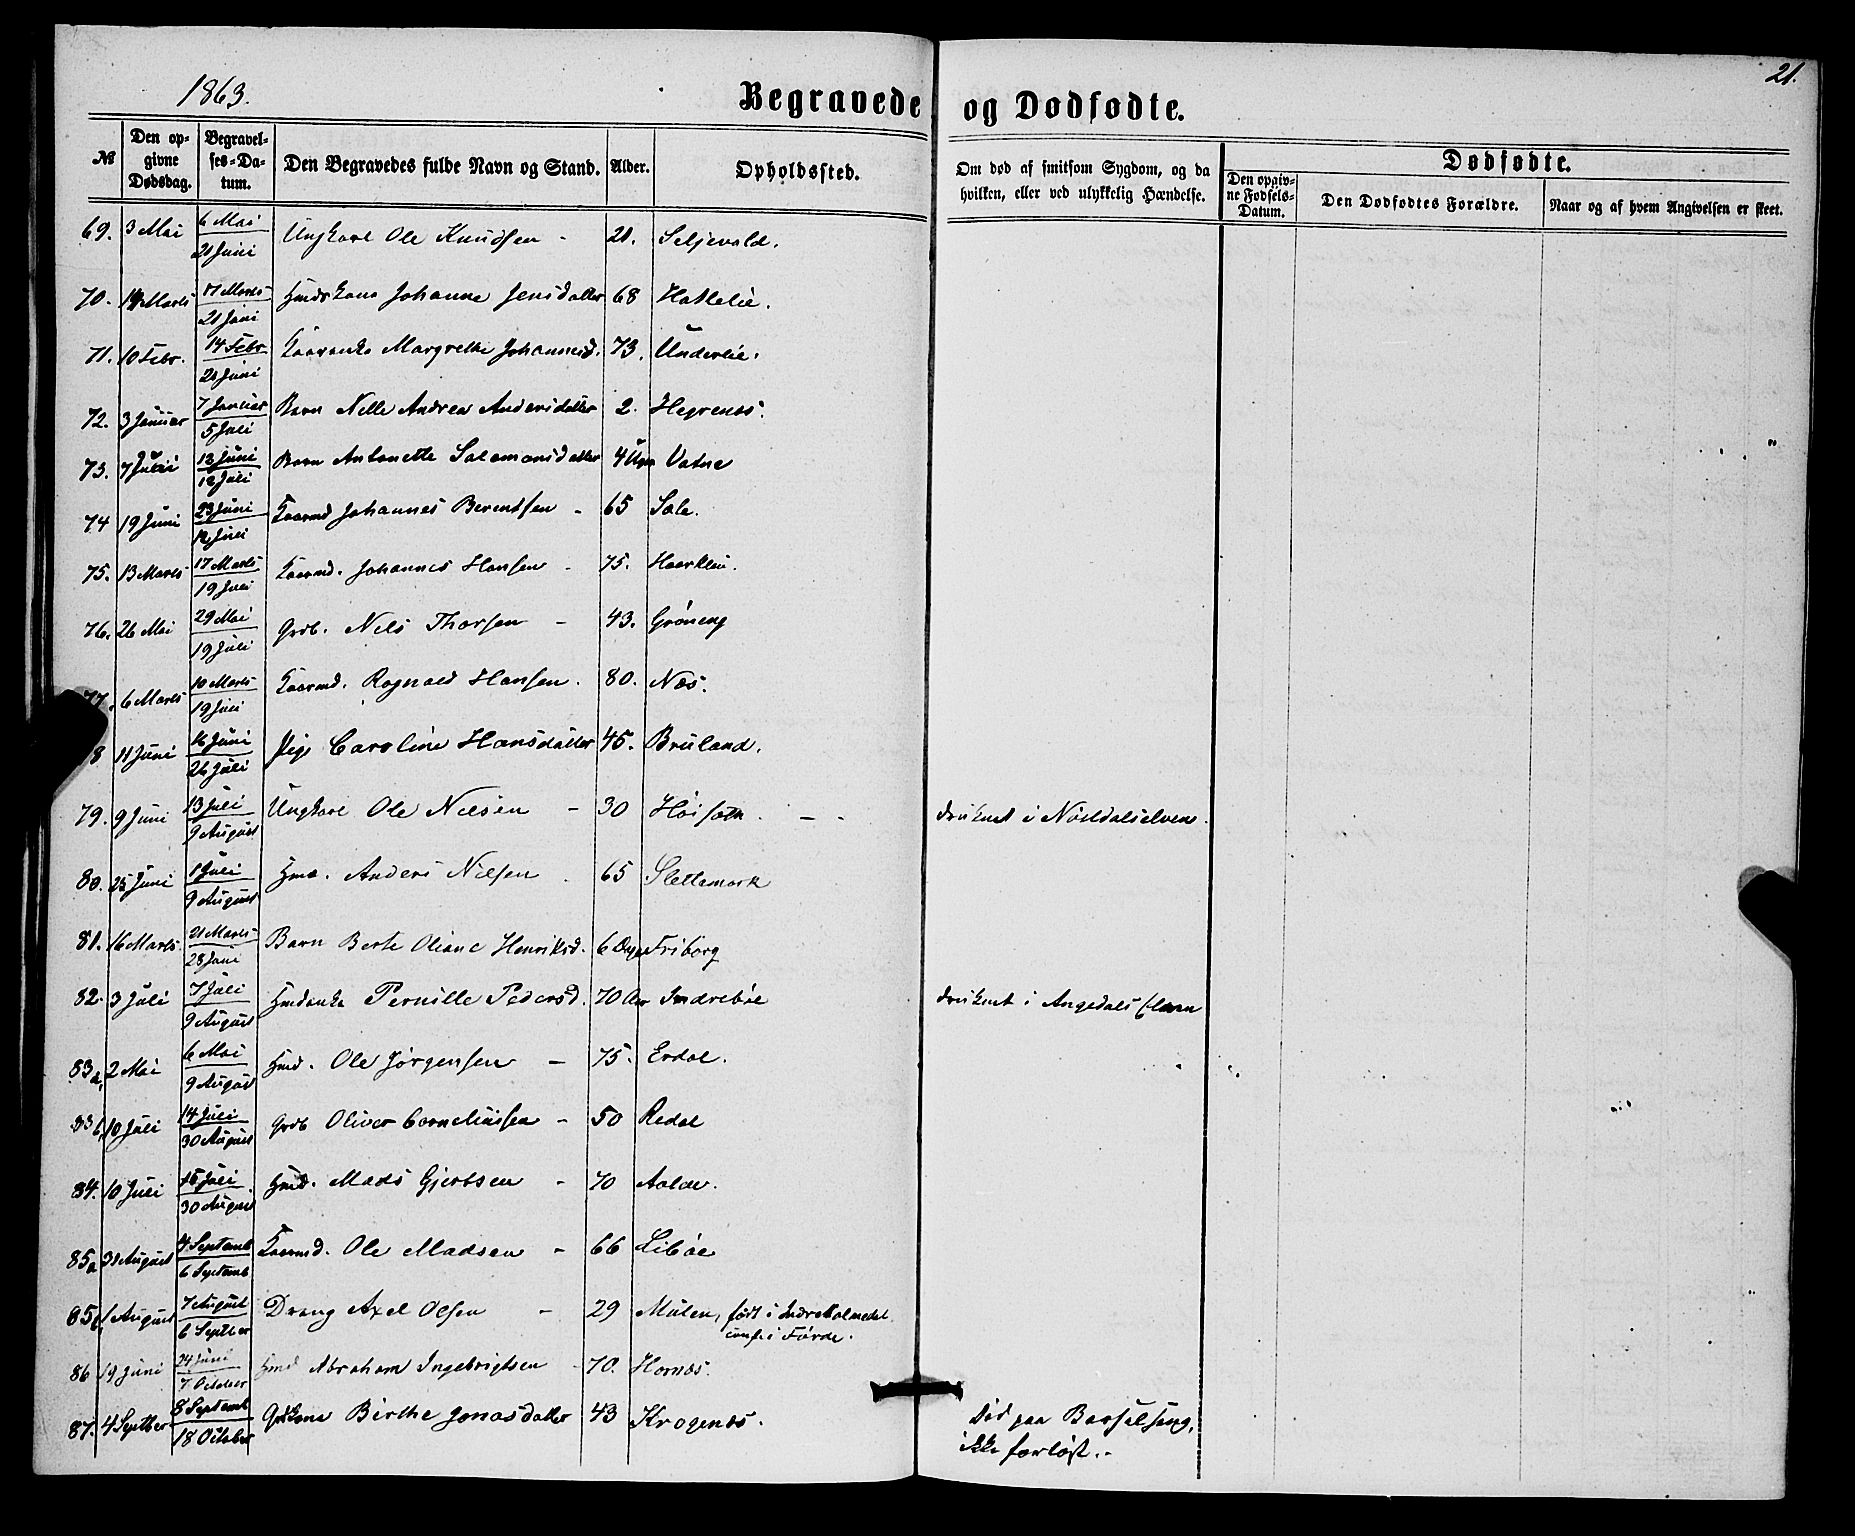 1863.
21.
Begravede og Dødfødte.
№ Den opgivne Dødsdag. Begravelses-Datum. Den Begravedes fulde Navn og Stand. Alder. Opholdssted. Om død af smitsom Sygdom, og da hvilken, eller ved ulykkelig Hændelse. Dødfødte.
Den opgivne Fødsels-Datum. Den Dødfødtes Forældre. Naar og af hvem Angivelsen er skeet.
69. 3 Mai 6 Mai 21 Juni Ungkarl Ole Knudsen - 21. Seljevold.
70. 14 Marts 17 Marts 21 Juni Hmdskone Johanne Jensdatter 68 Hatlelie.
71. 10 Febr. 14 Febr. 21 Juni Kaarenke Margrethe Johannesd. 73. Underlie.
72. 3 Januar 7 Januar 5 Juli Barn Nille Andrea Andersdatter 2. Hegrenæs.
73. 7 Juni 12 Juni 12 Juli Barn Antonette Salamonsdatter 4 Uger Vatne
74 19 Juni 23 Juni 12 Juli Kaarmd Johannes Berentsen - 65 Sæle.
75. 13 Marts 17 Marts 19 Juli Kaarmd. Johannes Hansen - 75.
76. 26 Mai 29 Mai 19 Juli Grdb. Nils Thorsen - 43. Gröneng
77. 6 Marts 10 Marts 19 Juli Kaarmd. Rognald Hansen. 80. Næs.
8 11 Juni 16 Juni 26 Juli Pige Caroline Hansdatter 45. Bruland.
79. 9 Juni 13 Juli 9 August Ungkarl Ole Nilsen - 30 Höisæth. - - druknet i
80. 25 Juni 1 Juli 9 August Hmd. Anders Nilsen 65 Slettemark
81. 16 Marts 21 Marts 28 Juni Barn Berte Oliane Henriksd. 6 Friborg
82. 3 Juli 7 Juli 9 August Hmdenke Pernille Pedersd. 70 Aar Indrebøe druknet i Angedals Elven
83a. 2 Mai 6 Mai 9 August Hmd. Ole Jørgensen - 75. Erdal.
83b 10 Juli 14 Juli 30 August Grdb Oliver Corneliussen - 50 Redal
84. 10 Juli 15 Juli 30 August Hmd. Mads Gjertsen - 70 Aalde.
85a 31 August 4 Septemb 6 Septemb Kaarmd. Ole Madsen - 66 Libøe
85b 1 August 7 August 6 Septber Dreng Axel Olsen - 29 Mulen, født i Indre Holmedal.
conf. i Førde.
86 19 Juni 24 Juni 7 October Hmd Abraham Ingebrigtsen - 70. Hornæs.
87. 4 Septber 8 Septemb 18 October Grdkone Birthe Jonasdatter 43 Krogenæs. Død paa Barselseng,
ikke forløst. -